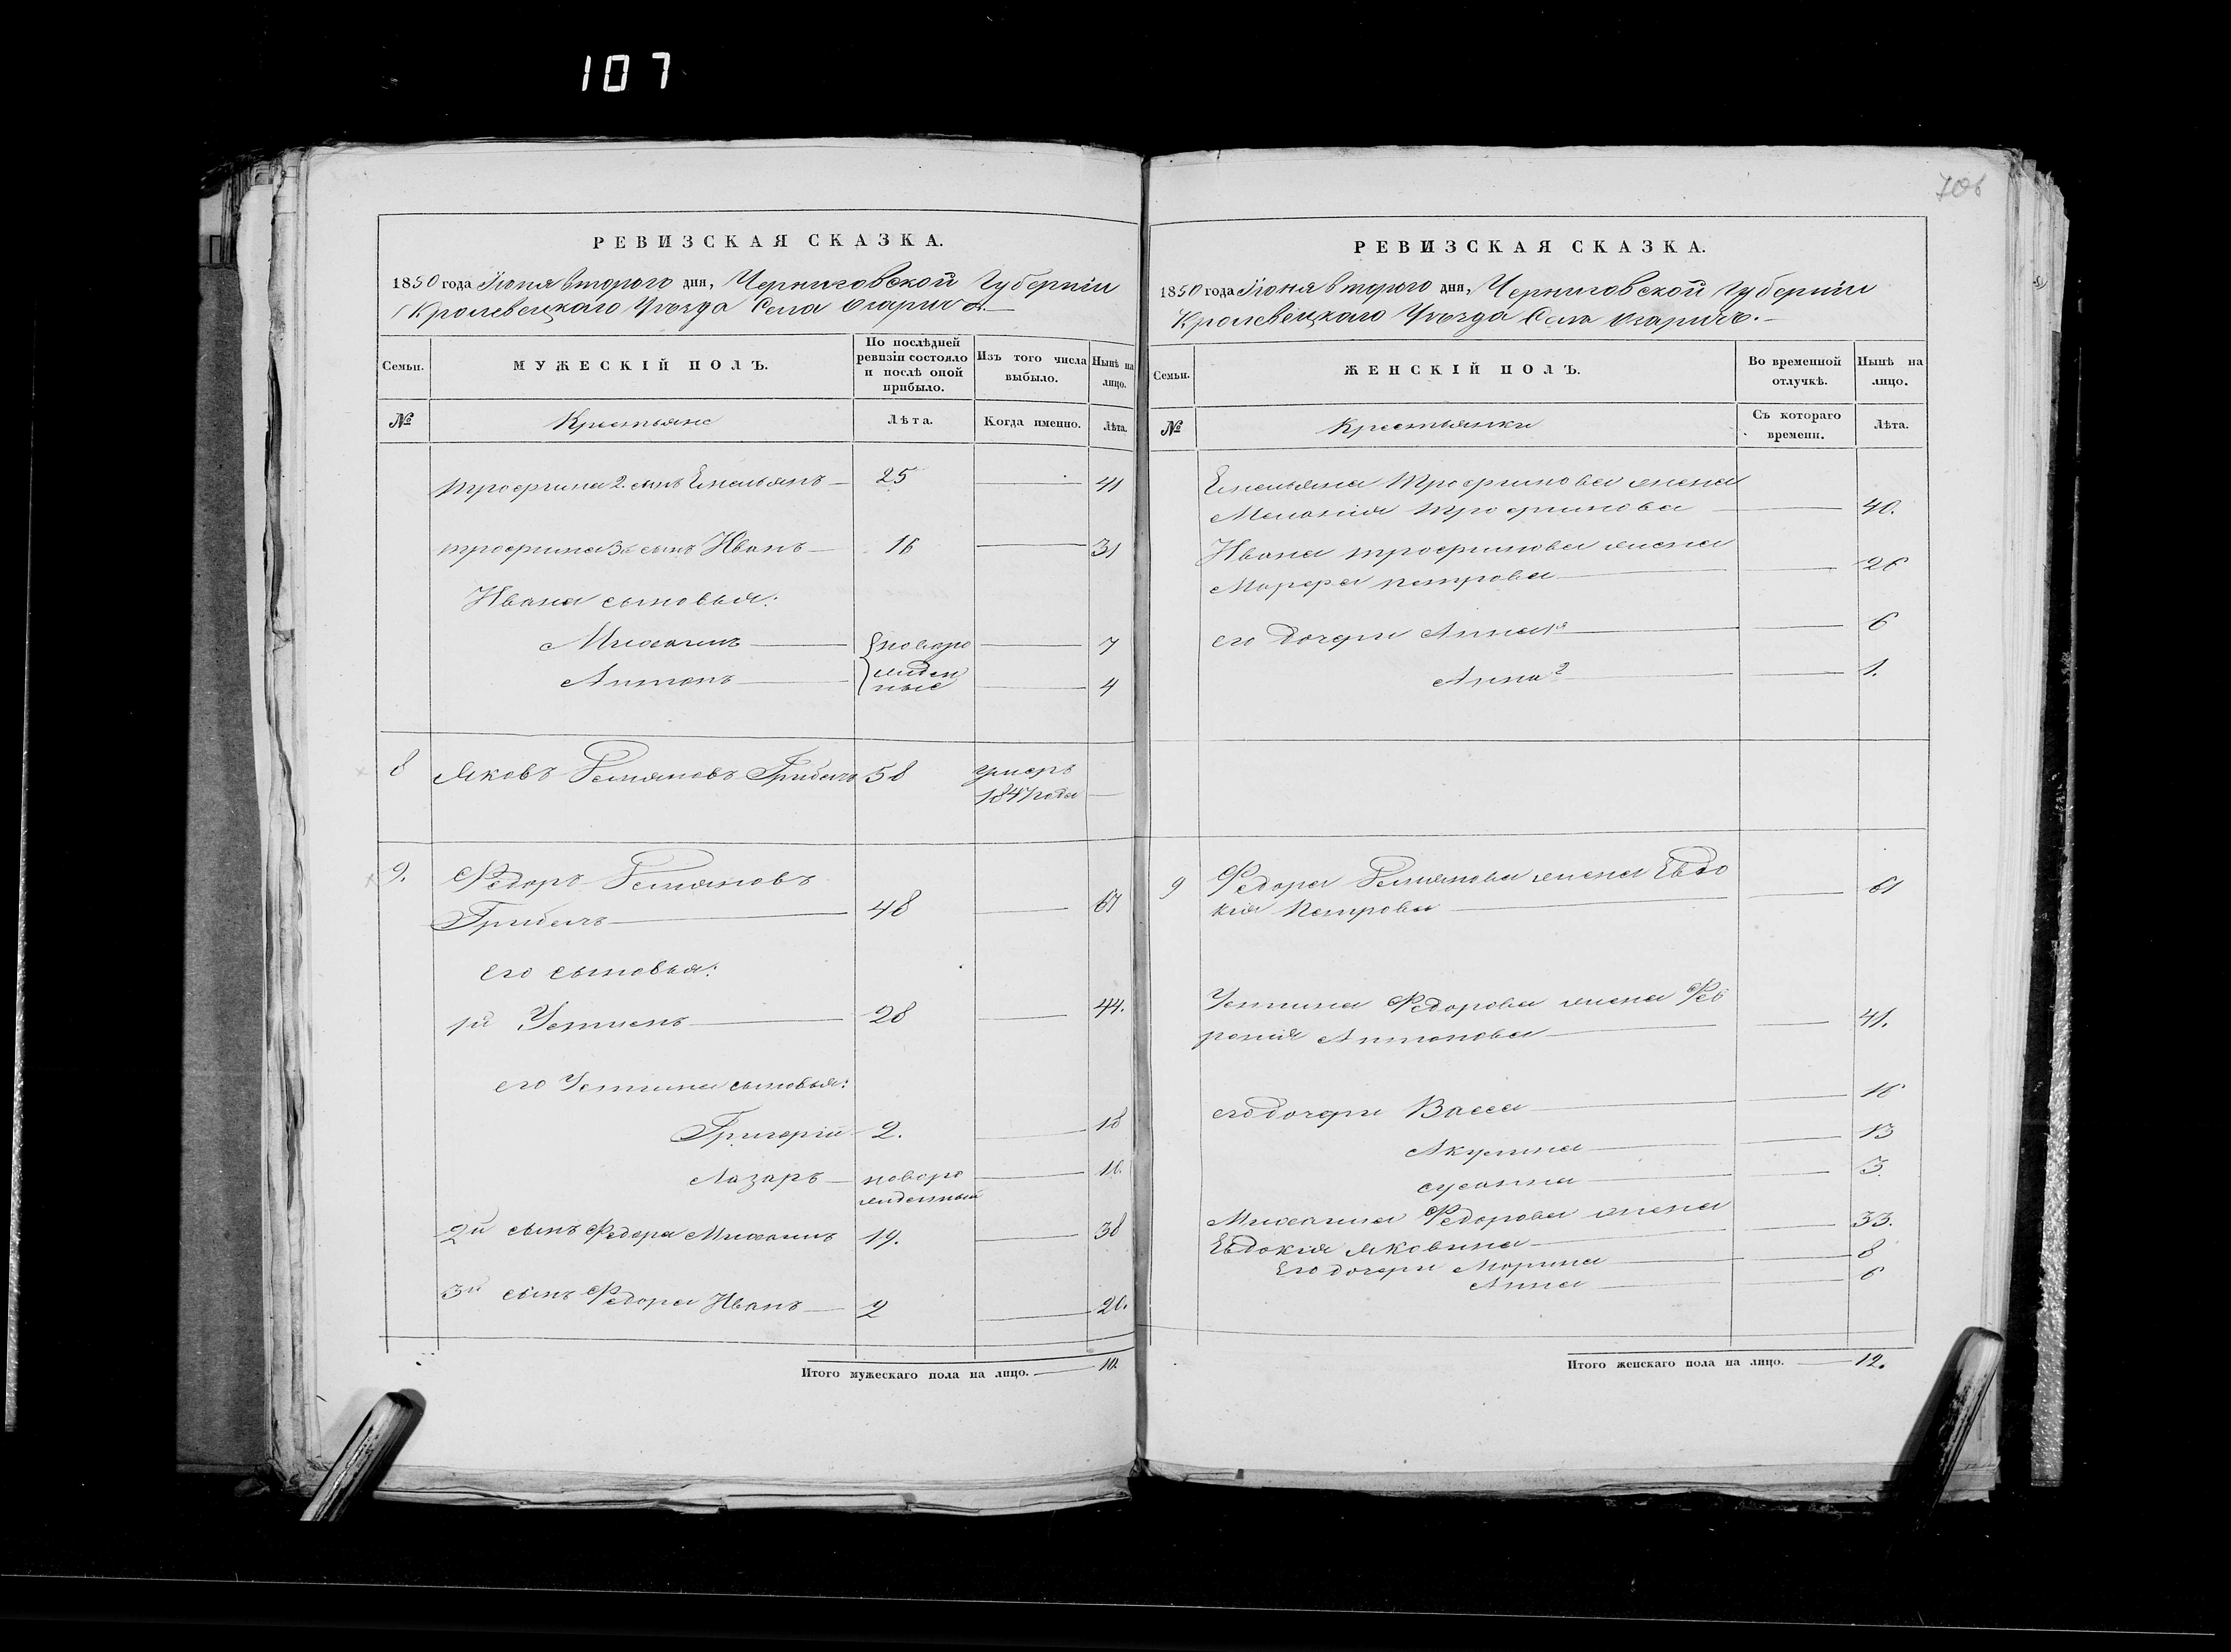 107
706
РЕВИЗСКАЯ СКАЗКА.
1850 года Іюня второго дня, Черниговской Губерніи
Кролевецкаго Уѣзда Села
Семьи.
МУЖЕСКІЙ ПОЛЪ.
По послѣдней ревизіи состояло и послѣ оной прибыло.
Изъ того числа выбыло.
Нынѣ на лицо.
№
Крестьяне
Лѣта.
Когда именно.
Лѣта.
Трофима 2. сынъ Емельянъ 25 41
Трофима 3й сынъ Иванъ 16 31
Ивана сыновья:
Михаилъ новоро 7
Антонъ жден
ные 4
8 Яковъ Грибачъ 58 умеръ
1847 года
9. Федоръ
Грибачъ 48
его сыновья:
1й Устинъ 28 44.
его Устина сыновья:
Григорій 2. 18
Лазарь новоро
жденный
2й сынъ Федора Михаилъ 19. 38
3й сынъ Федора Иванъ 2
Итого мужескаго пола на лицо. 10.
РЕВИЗСКАЯ СКАЗКА.
1850 года Іюня второго дня, Черниговской Губерніи
Кролевецкаго Уѣзда Села
Семьи.
ЖЕНСКІЙ ПОЛЪ.
Во временной отлучкѣ.
Нынѣ на лицо.
№
Крестьянки
Съ котораго времени.
Лѣта.
Емельяна Трофимова жена
Меланія Трофимова 40.
Ивана Трофимова жена
Марфа Петрова 26
его дочери Анна 1я 6
Анна 2 1.
9 Федора жена Евдо
кія Петрова 61
Устина Федорова жена Фев
ронія Антонова 41.
его дочери Васса 16
Акулина 13
Сусанна 3
Михаила Федорова жена
Евдокія Яковлева 33.
Его дочери Марина 8
Анна 6
Итого женскаго пола на лицо. 12.